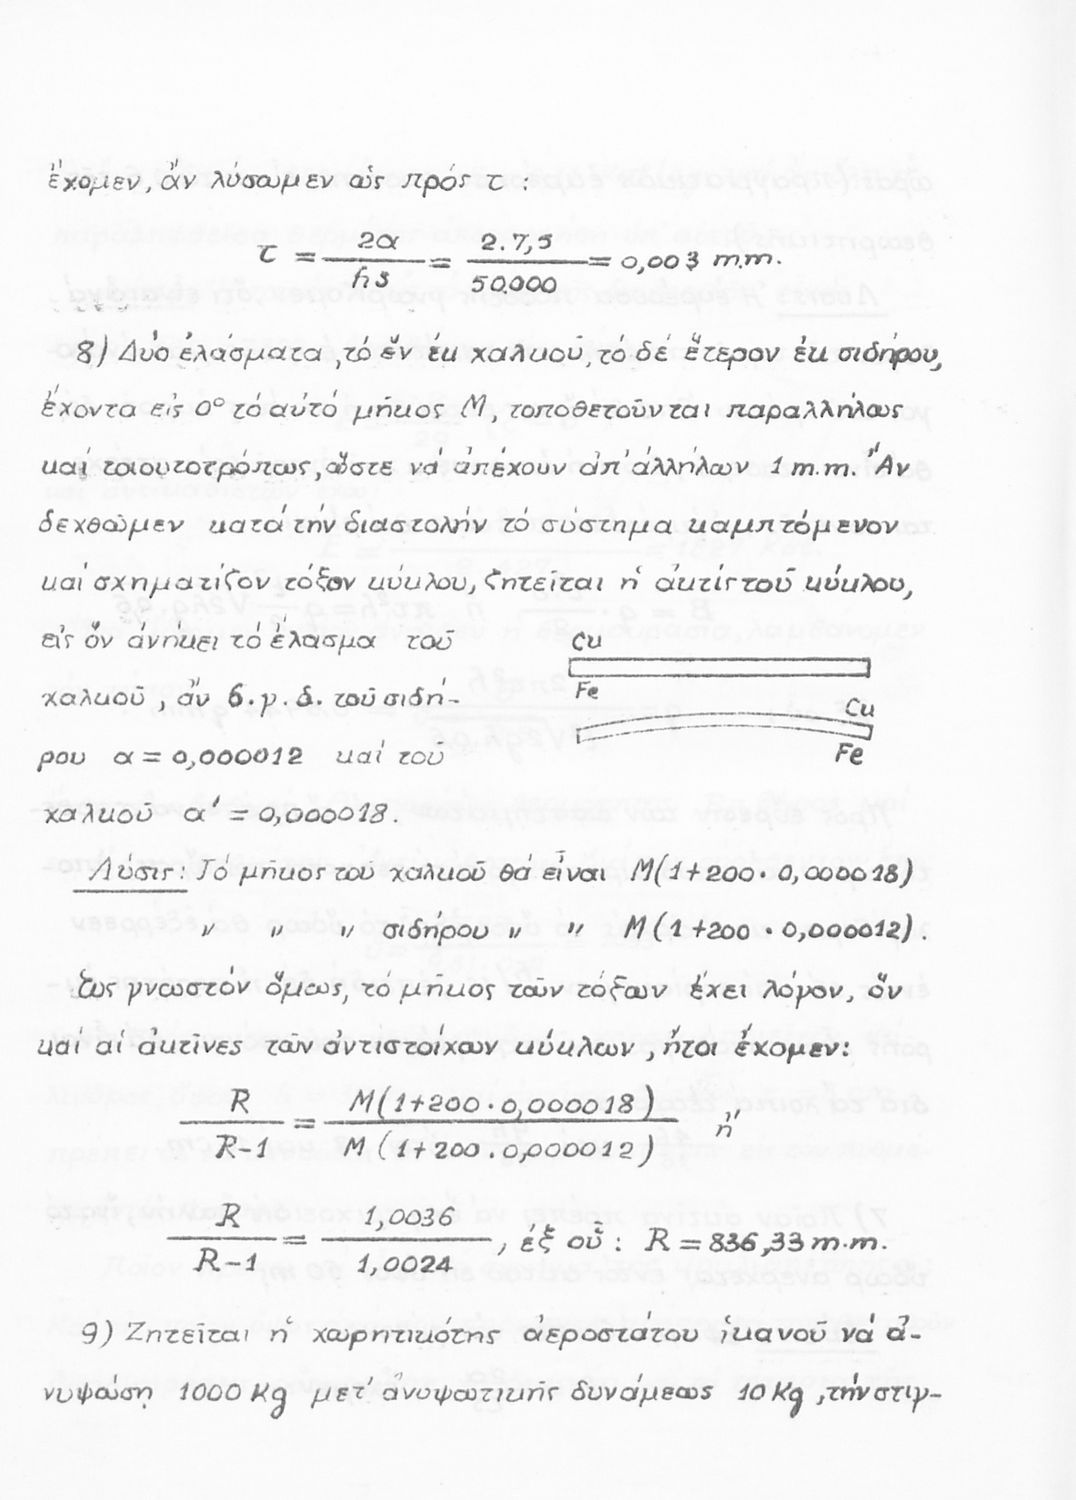 ἔχομεν, ἄν λύσωμεν ὡς πρός τ :
τ = 2α / hs = 2.7,5 / 50.000 = 0,003 m.m.
8) Δύο ἐλάσματα, τό ἕν ἐκ χαλκοῦ, τό δέ ἕτερον ἐκ σιδήρου,
ἔχοντα εἰς 0° τό αὐτό μῆκος M, τοποθετοῦνται παραλλήλως
καί τοιουτοτρόπως, ὥστε νά ἀπέχουν ἀπ' ἀλλήλων 1 m.m. Ἄν
δεχθῶμεν κατά τήν διαστολήν τό σύστημα καμπτόμενον
καί σχηματίζον τόξον κύκλου, ζητεῖται ἡ ἀκτίς τοῦ κύκλου,
εἰς ὅν ἀνήκει τό ἔλασμα τοῦ
χαλκοῦ, ἄν σ.γ.δ. τοῦ σιδή-
ρου α = 0,000012 καί τοῦ
χαλκοῦ α' = 0,000018.
Cu
Fe
Cu
Fe
Λύσις: Τό μῆκος τοῦ χαλκοῦ θά εἶναι M(1+200·0,000018)
〃 〃 〃 σιδήρου 〃 〃 M(1+200·0,000012).
Ὡς γνωστόν ὅμως, τό μῆκος τῶν τόξων ἔχει λόγον, ὅν
καί αἱ ἀκτῖνες τῶν ἀντιστοίχων κύκλων, ἤτοι ἔχομεν:
R / R-1 = M(1+200·0,000018) / M(1+200·0,000012) ἤ
R / R-1 = 1,0036 / 1,0024, ἐξ οὗ : R = 836,33 m.m.
9) Ζητεῖται ἡ χωρητικότης ἀεροστάτου ἱκανοῦ νά ἀ-
νυψώσῃ 1000 Kg μετ' ἀνυψωτικῆς δυνάμεως 10 kg, τήν στιγ-